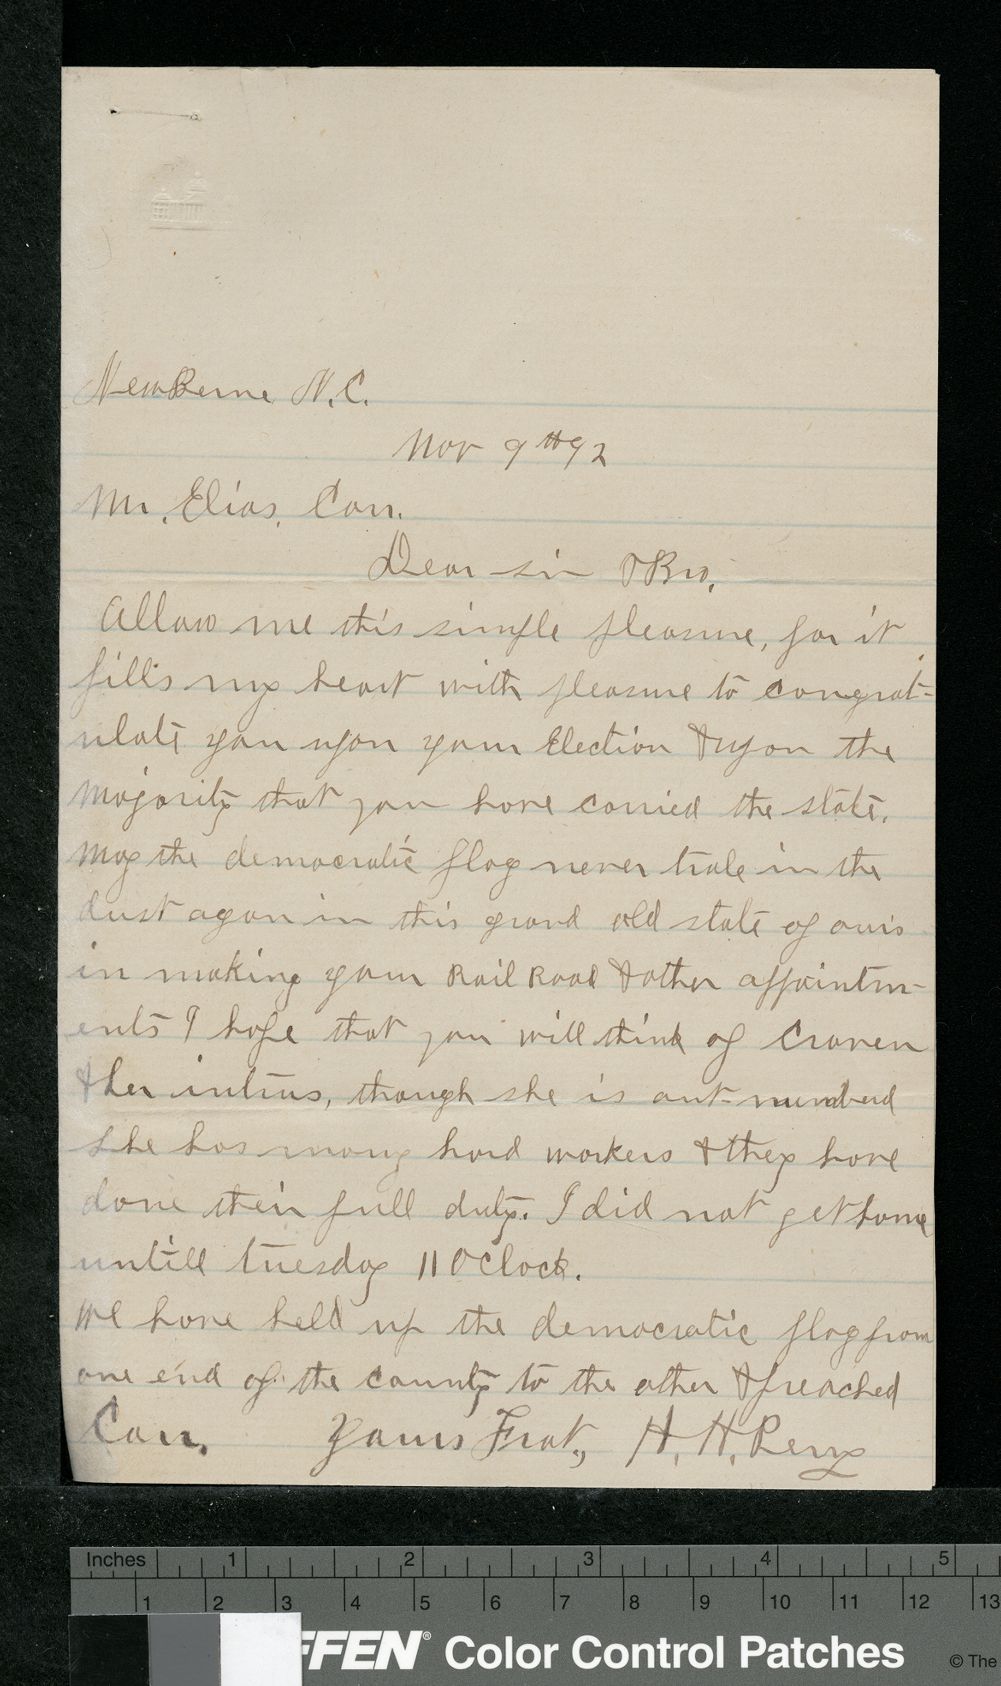 NewBerne N.C.
Nov 9th 92
Mr. Elias. Carr.
Dear sir & Bro.
Allow me this simple pleasure, for it
fills my heart with pleasure to congrat-
ulate you upon your Election & upon the
Majority that you have carried the state.
May the democratic flag never trale in the
dust agan in this grand old state of ours
in making your Rail Road & other appointm-
ents I hope that you will think of Craven
& her intrus, though she is out-numberd
she has many hard workers & they have
done their full duty. I did not get home
untill tuesday 11 OClock.
We have held up the democratic flag from
one end of the county to the other & preached
Carr. Yours Frat., H. H. Perry
Inches 1 2 3 4 5
1 2 3 4 5 6 7 8 9 10 11 12 13
FFEN® Color Control Patches © The